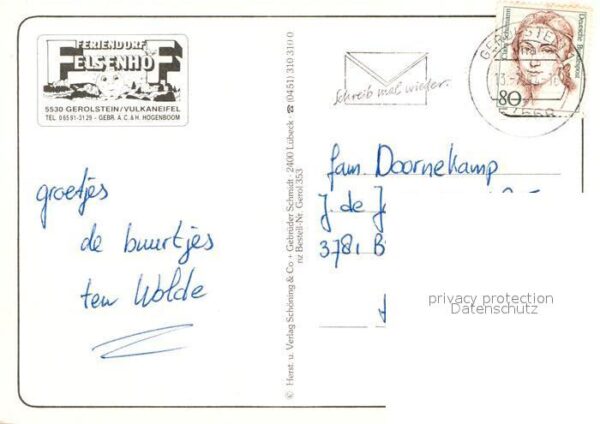 FERIENDORF
FELSENHOF
5530 GEROLSTEIN/VULKANEIFEL
TEL. 06591-3129 - GEBR. A.C. & H. HOGENBOOM
groetjes
de buurtjes
ten Wolde
© Herst. u. Verlag Schöning & Co + Gebrüder Schmidt · 2400 Lübeck · ☎ (0451) 310 310 0
nz Bestell-Nr. Gerol 353
Schreib mal wieder.
Deutsche Bundespost
80
fam. Doornekamp
J. de
3781 B
privacy protection
Datenschutz